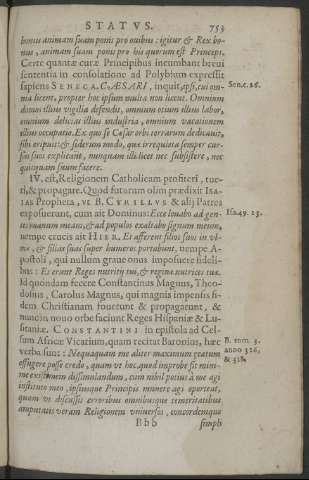 STATVS.
753
bonus animam suam ponis pro ouibus: igitur & Rex bo-
nus, animam suam ponis pro his quorum est Princeps.
Certe quantæ curæ Principibus incumbant breui
sententia in consolatione ad Polybium expressit
sapiens SENECA. CÆSARI, inquit, ipsi, cui om-
Senec. 26.
nia licent, propter hoc ipsum multa non licent. Omnium
domos illius vigilia defendit, omnium otium illius labor,
omnium delicias illius industria, omnium vacationem
illius occupatio. Ex quo se Cæsar orbi terrarum dedicauit,
sibi eripuit: & siderum modo, quæ irrequieta semper cur-
sus suos explicant, nunquam illi licet nec subsistere, nec
quicquam suum facere.
IV. est, Religionem Catholicam profiteri, tue-
ri, & propagare. Quod futurum olim prædixit ISA-
IAS Propheta, vt B. CYRILLVS & alij Patres
exposuerunt, cum ait Dominus: Ecce leuabo ad gen-
Isa. 49. 23.
tes manum meam, & ad populos exaltabo signum meum,
nempe crucis ait HIER. Et afferent filios tuos in vl-
nis, & filias tuas super humeros portabunt, nempe A-
postoli, qui nullum graue onus imposuere fideli-
bus: Et erunt Reges nutritij tui, & reginæ nutrices tuæ.
Id quondam fecere Constantinus Magnus, Theo-
dosius, Carolus Magnus, qui magnis impensis fi-
dem Christianam fouerunt & propagarunt, &
nunc in nouo orbe faciunt Reges Hispaniæ & Lu-
sitaniæ. CONSTANTINI in epistola ad Cel-
sum Africæ Vicarium, quam recitat Baronius, hæc
B. tom. 3.
verba sunt: Nequaquam me aliter maximum reatum
anno 316.
effugere posse credo, quam vt hoc, quod improbe fit mini-
& 318.
me existimem dissimulandum, cum nihil potius à me agi
instituto meo, ipsiusque Principis munere agi oporteat,
quam vt discussis erroribus omnibusque temeritatibus
amputatis veram Religionem vniuersos, concordemque
Bbb
simpli